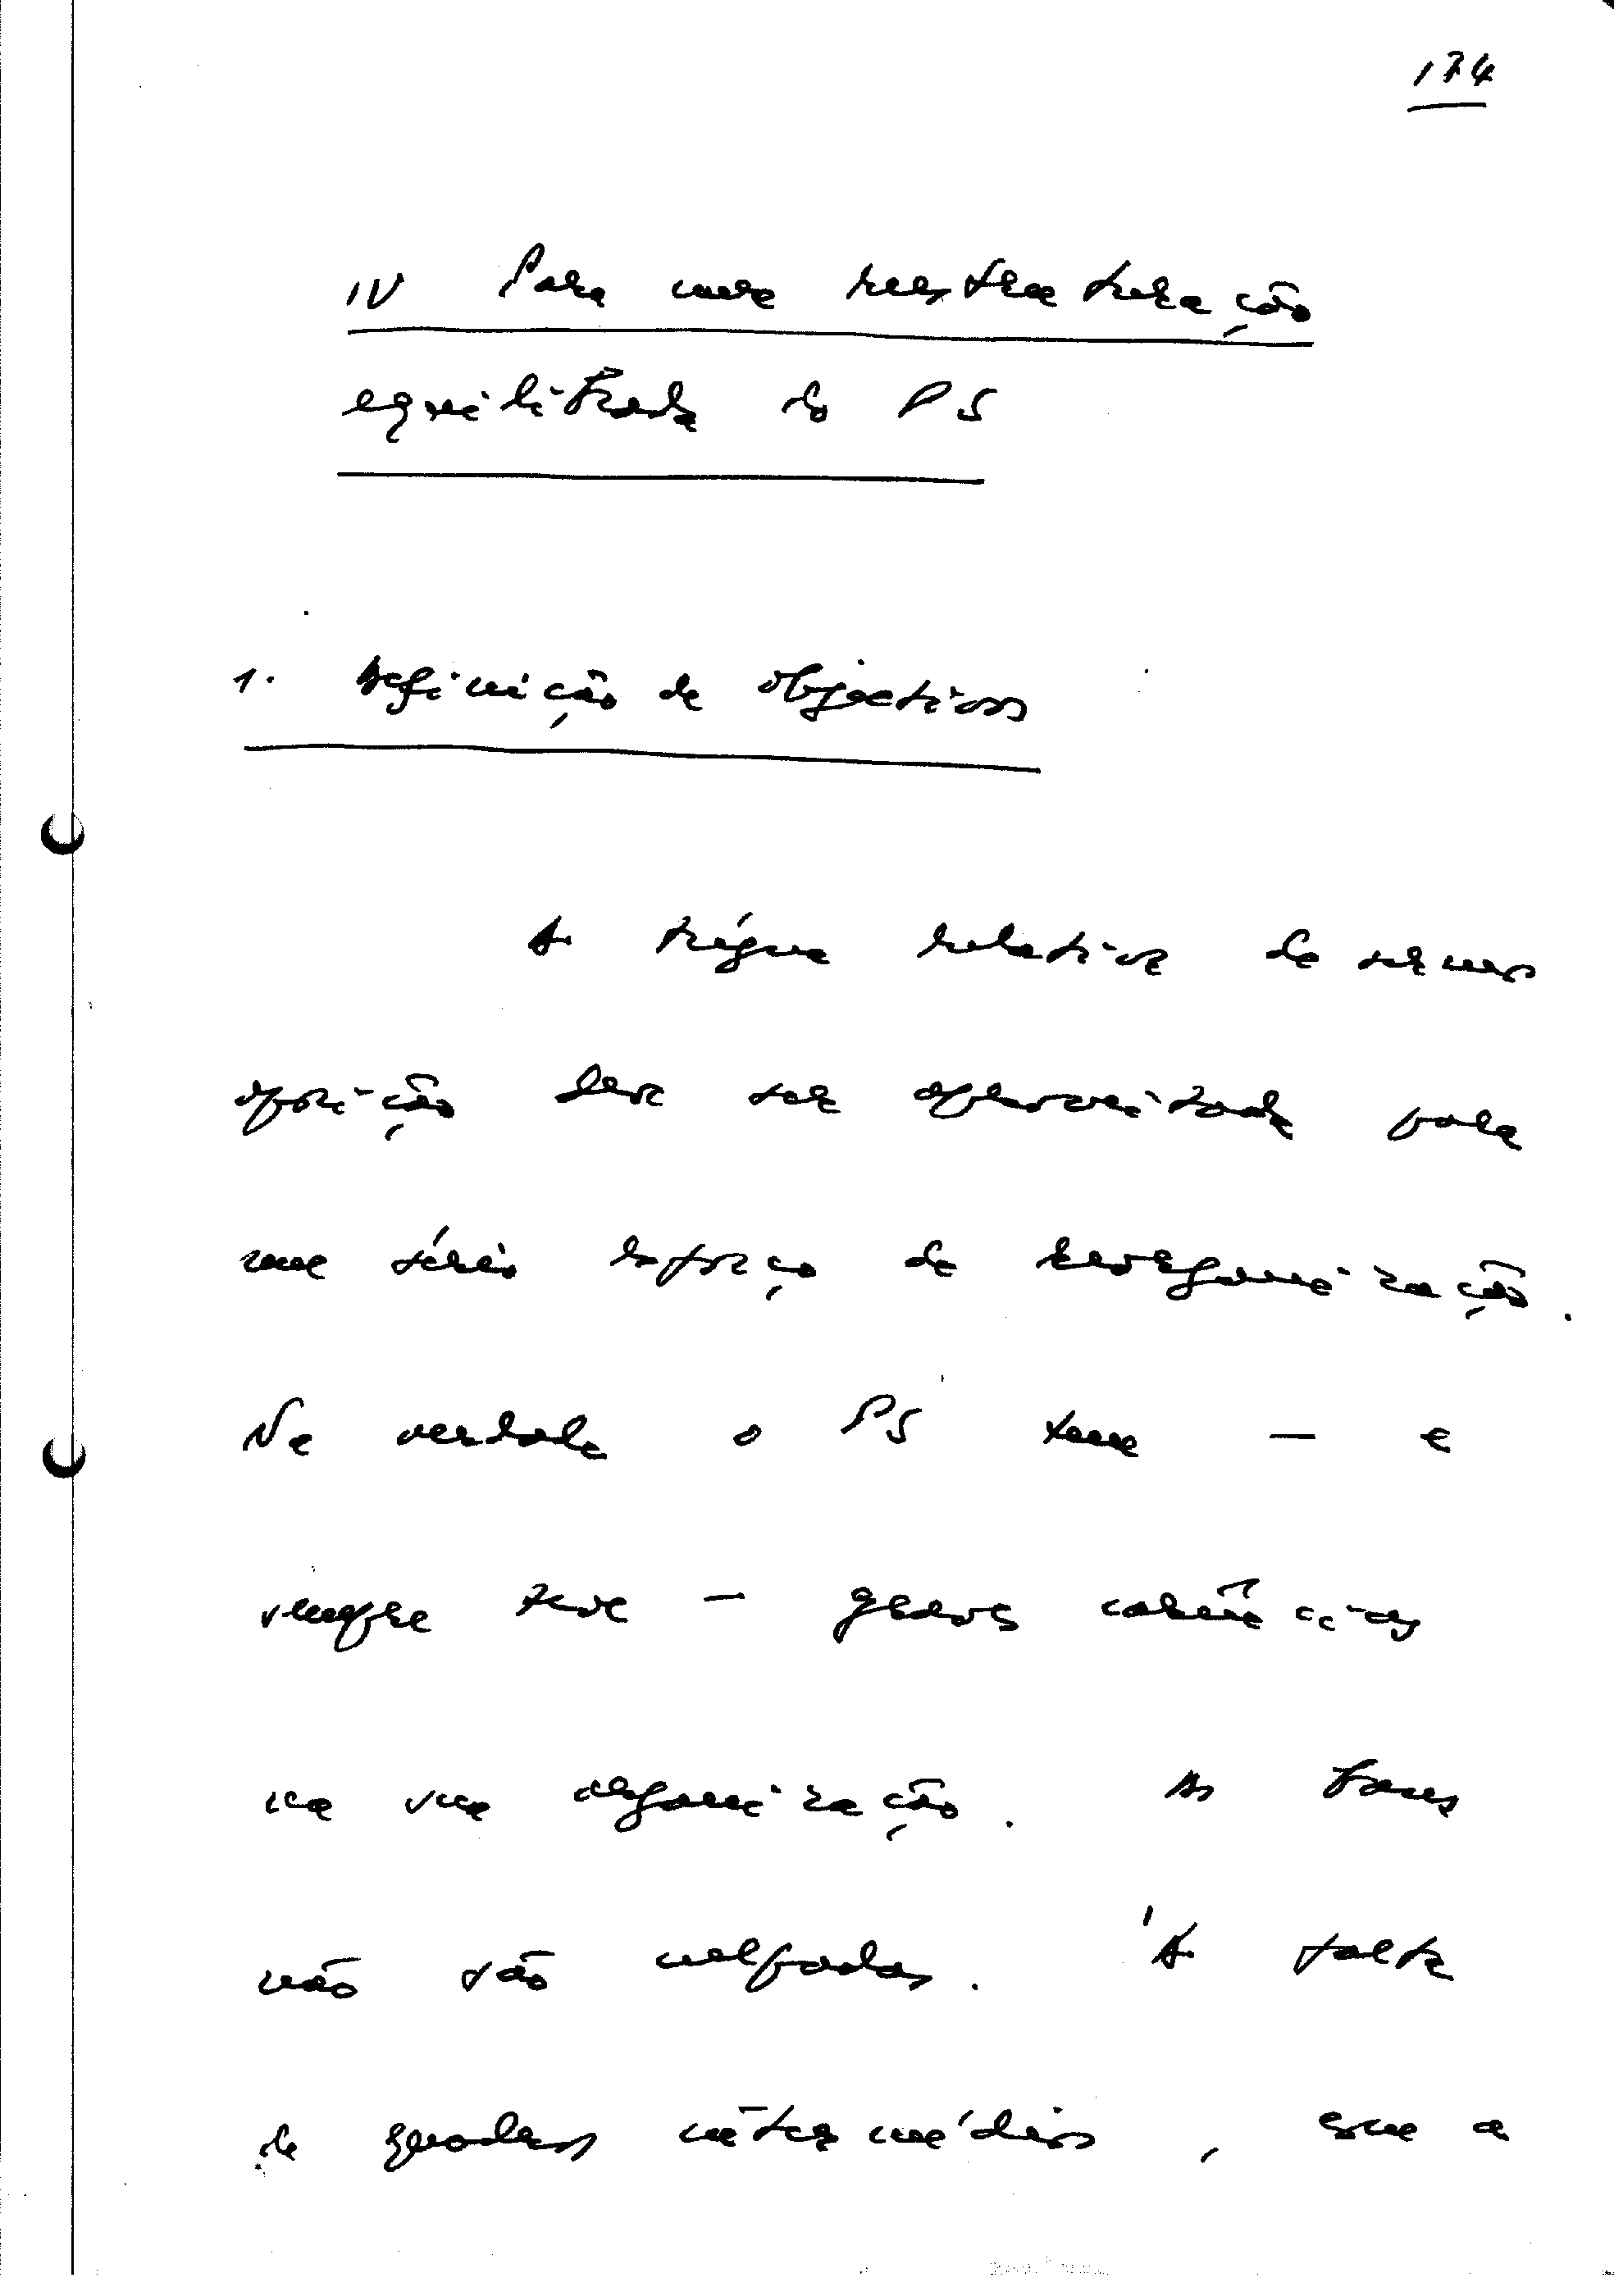 174
IV Para uma reestruturação
equilibrada do PS
1. Definição de objectivos
A trégua relativa de sermos
oposição deve ser aproveitada para
um sério esforço de reorganização.
Na verdade o PS tem — e
sempre teve — graves carências
na sua organização. As bases
não são culpadas. A falta
de quadros intermédios, com a